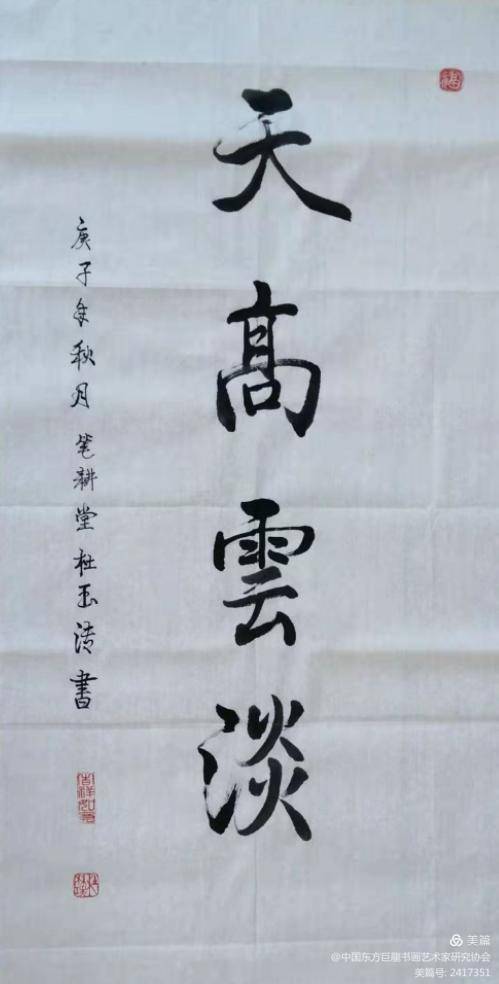 天髙雲淡
庚子年秋月 笔耕堂杜玉清書
吉祥如意
美篇
@中国东方巨龍书画艺术家研究协会
美篇号: 2417351